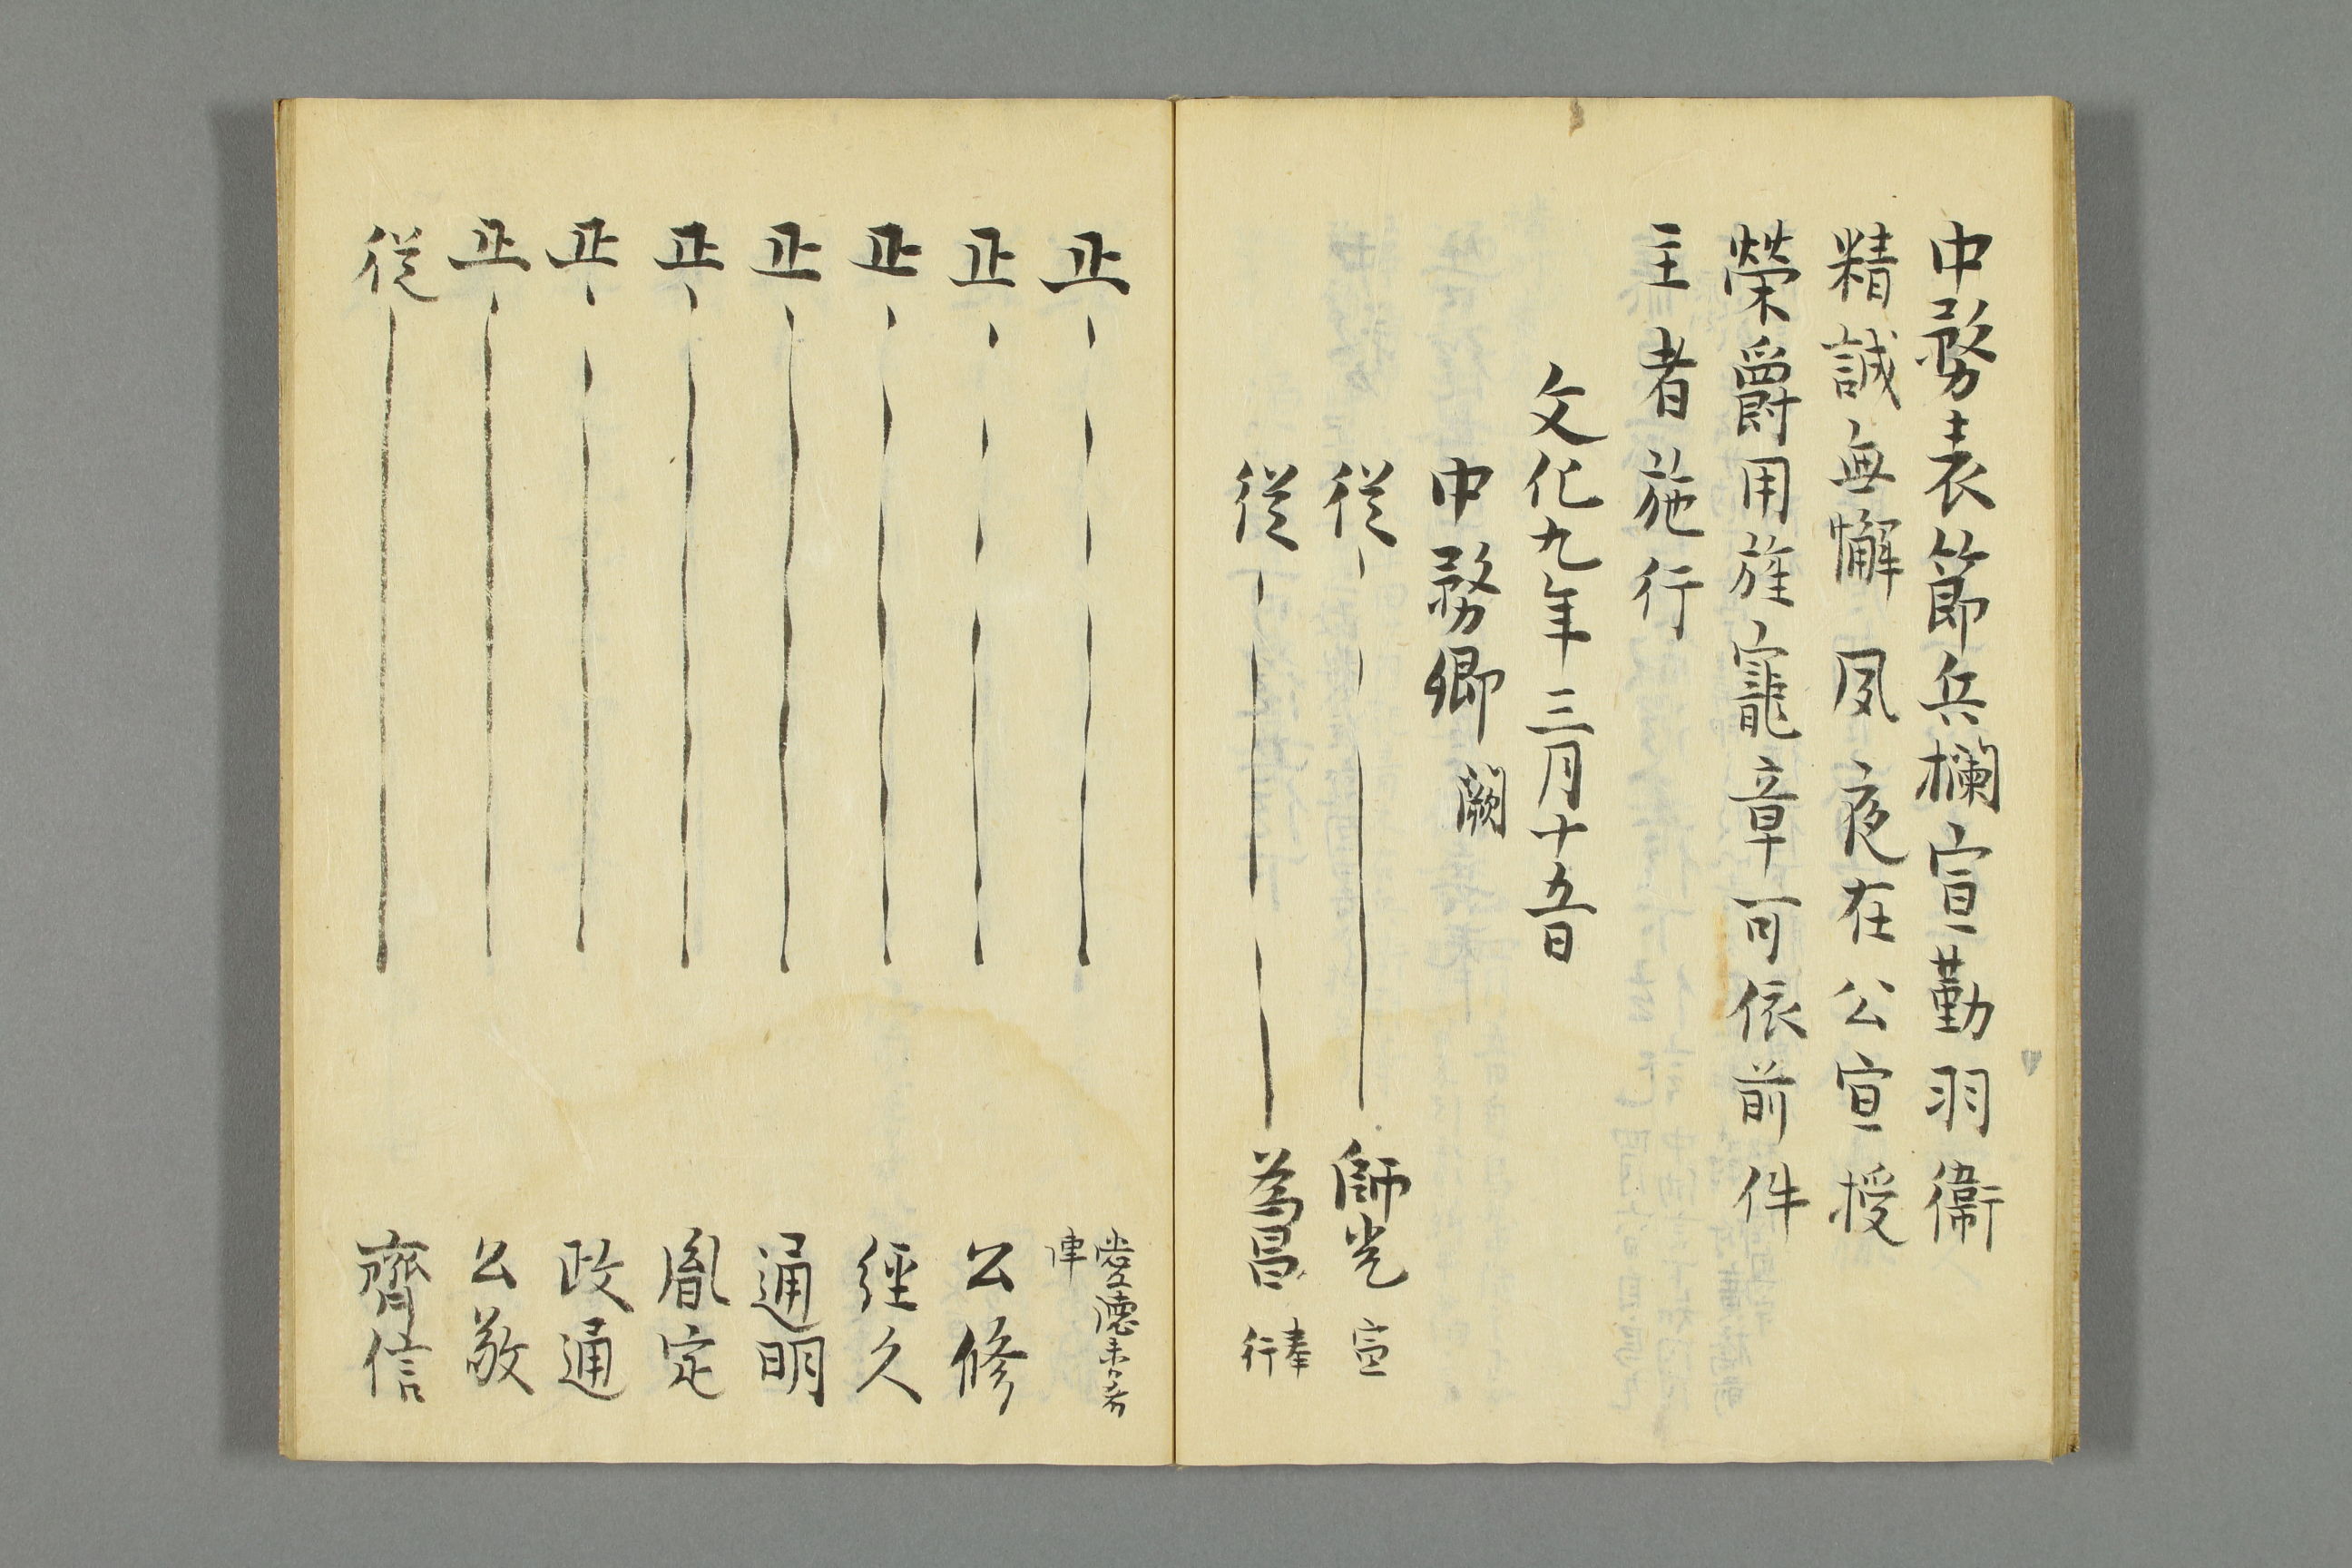 中務表節兵欄宣勤羽衛
精誠無懈夙夜在公宣授
榮爵用旌寵章可依前件
主者施行
文化九年三月十五日
中務卿 闕
従 師光 宣
従 為昌 奉行
正
正 公修
正 経久
正 通明
正 胤定
正 政通
正 公敬
従 齊信